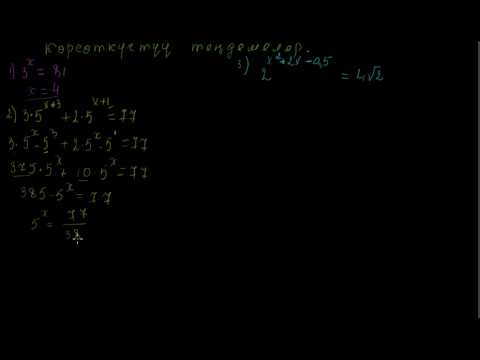 көрсөткүчтүү теңдемелер.
1) 3^x = 81
x = 4
2) 3·5^{x+3} + 2·5^{x+1} = 77
3·5^x·5^3 + 2·5^x·5^1 = 77
375·5^x + 10·5^x = 77
385·5^x = 77
5^x = 77/38
3) 2^{x^2+2x-0,5} = 4√2